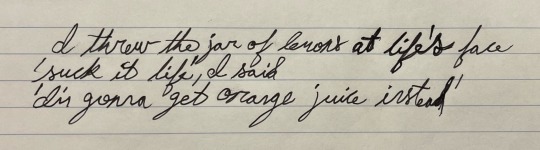 I threw the jar of lemons at life's face
'suck it life', I said
'I'm gonna get orange juice instead'